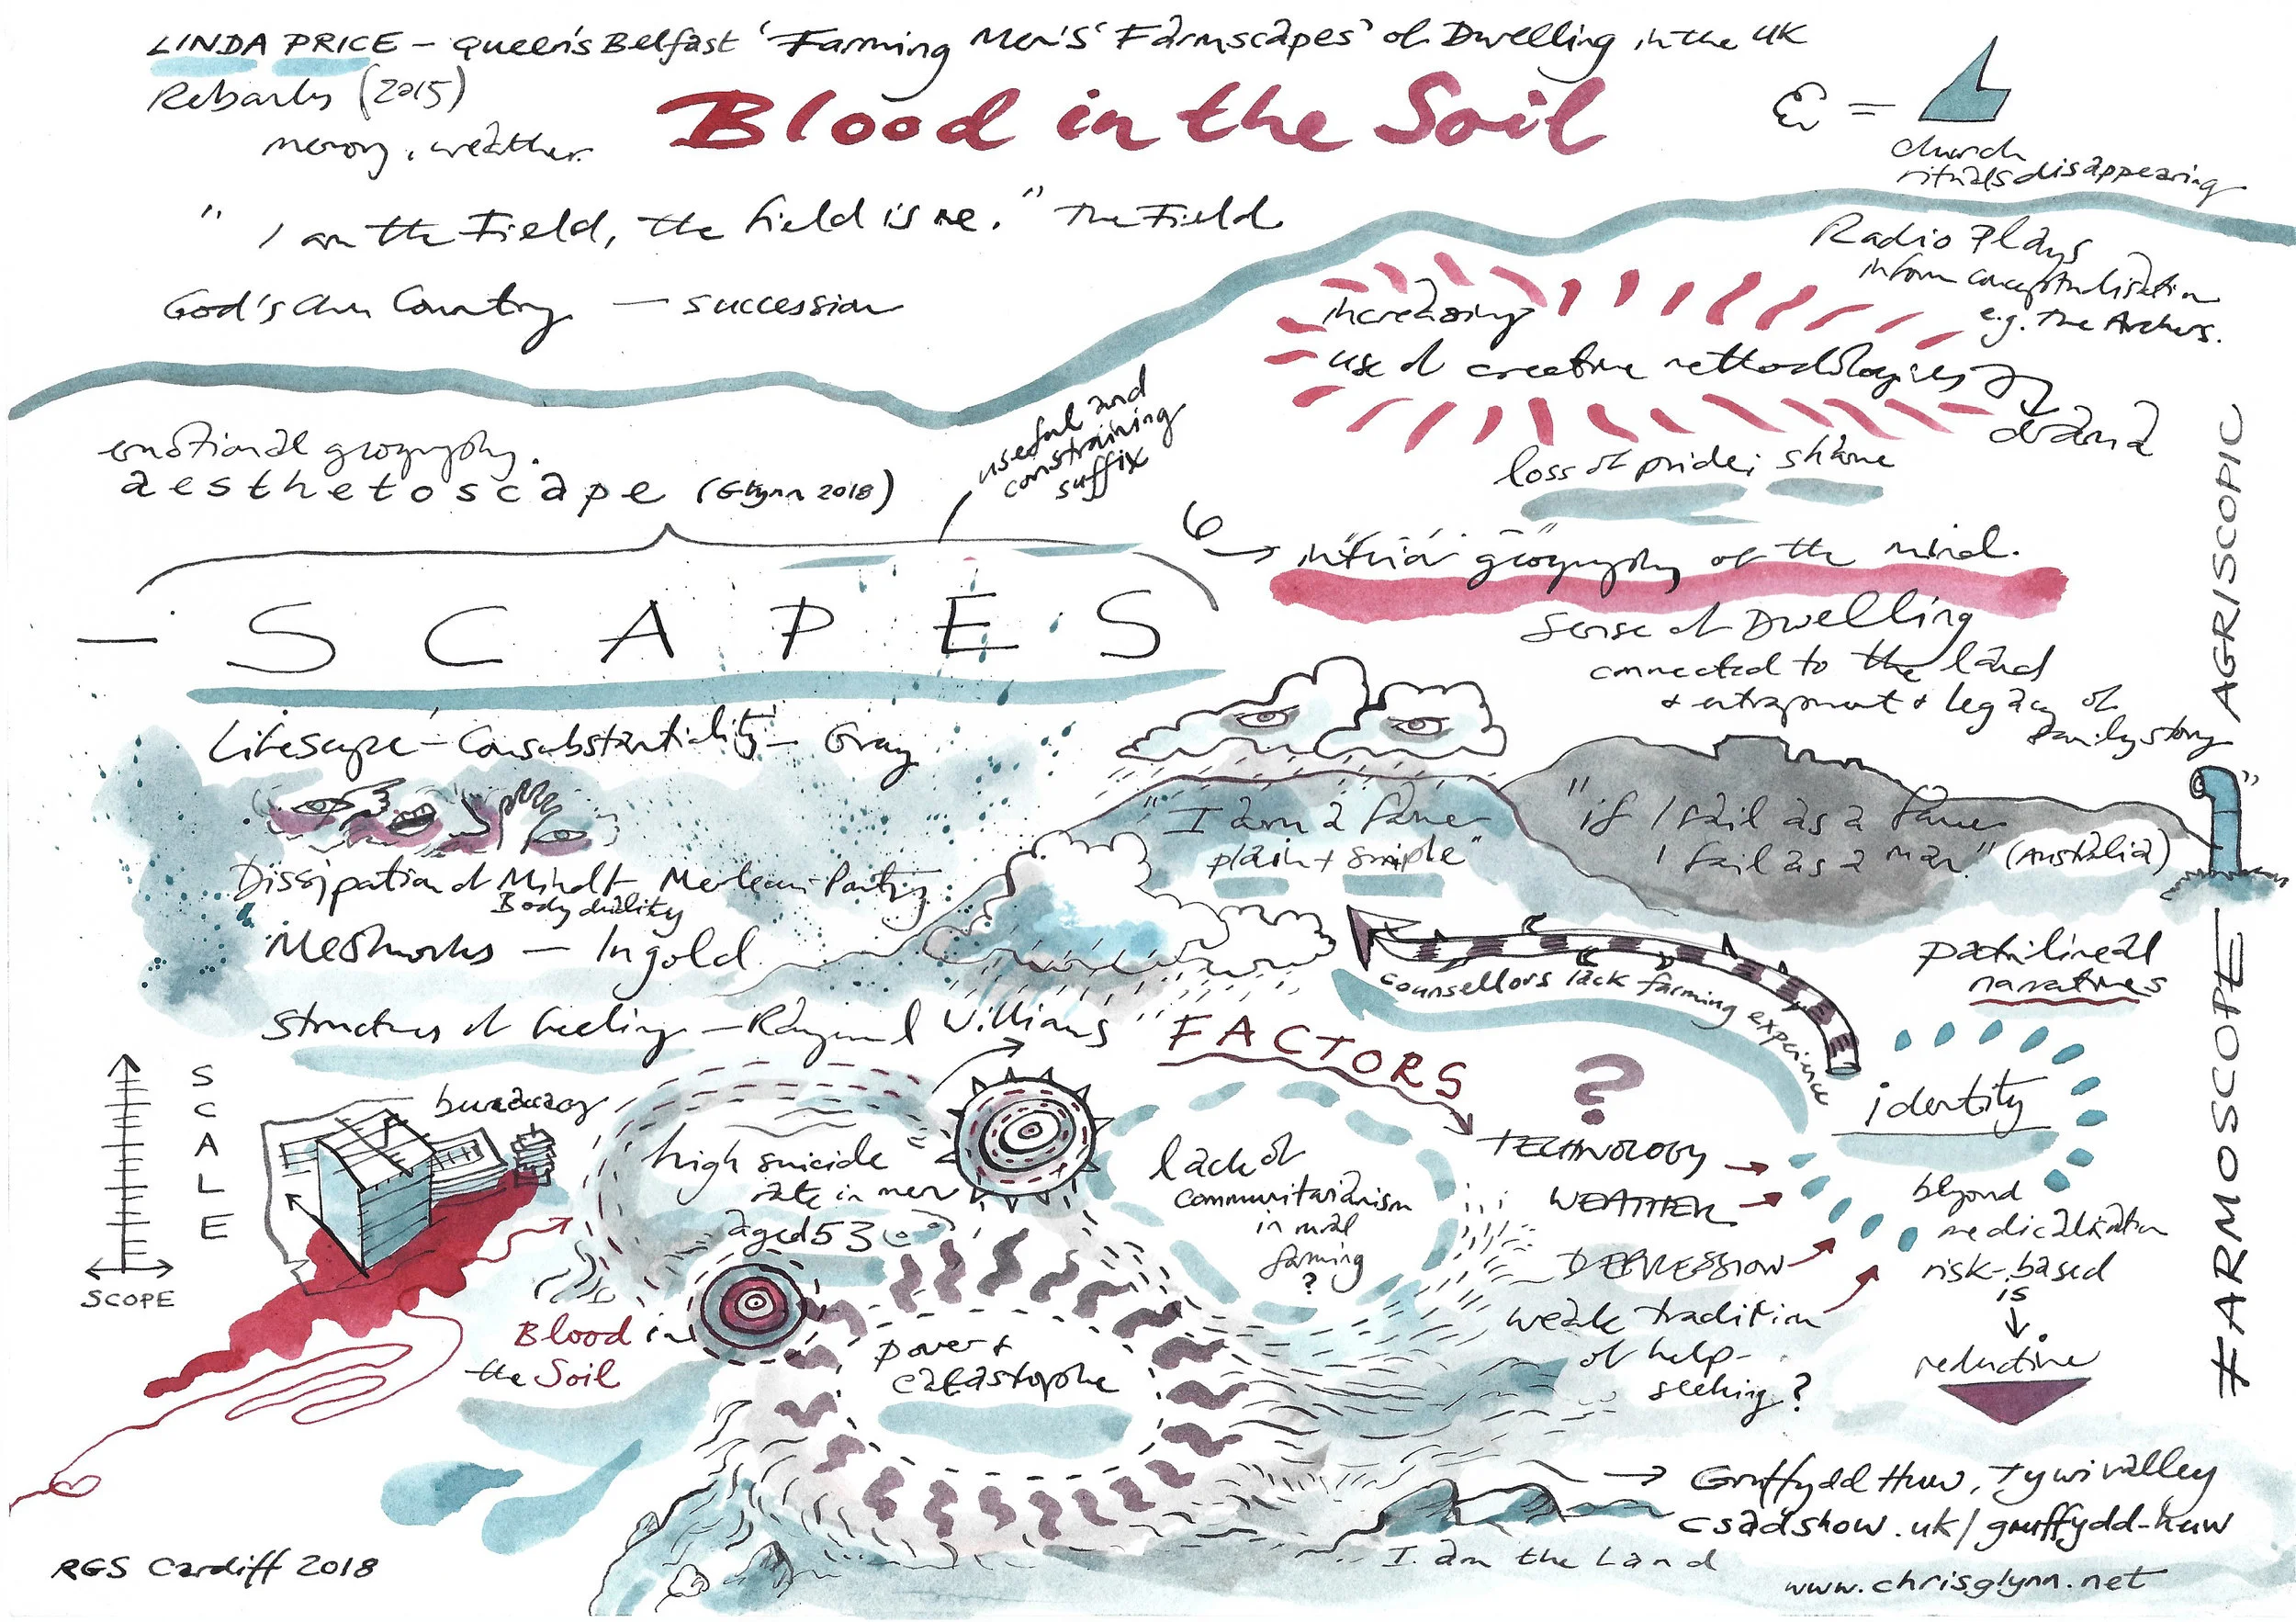 LINDA PRICE – Queen's Belfast 'Farming Men's 'Farmscapes' of Dwelling in the UK
(2015)
Blood in the Soil
memory, weather
=
church
rituals disappearing
"I am the Field, the field is me." The Field
God's Own Country – succession
Radio Plays
inform conceptualisation
e.g. The Archers.
increasing
use of creative methodologies
drama
loss of pride; shame
emotional geography.
aesthetoscape (Glynn 2018)
useful and
constraining
suffix
– SCAPES
"interior geography" of the mind.
sense of Dwelling
connected to the land
+ entrapment + legacy of
family story
AGRISCOPIC
FARMOSCOPE
Lifescape – Consubstantiality – Gray
Dissipation of Mind + Merleau-Ponty
Body duality
Meshworks – Ingold
Structures of Feeling – Raymond Williams
"I am a farmer
plain + simple"
"if I fail as a farmer
I fail as a man." (Australia)
counsellors lack farming experience
patrilineal
narratives
identity
beyond
medicalisation
risk-based
is
reductive
FACTORS
?
TECHNOLOGY
WEATHER
DEPRESSION
weak tradition
of help-
seeking?
SCALE
SCOPE
bureaucracy
high suicide
rate in men
aged 53
lack of
communitarianism
in rural
farming
?
Blood in
the Soil
power +
catastrophe
Gruffydd Huw, Tywi valley
csadshow.uk/gruffydd-huw
I am the Land
RGS Cardiff 2018
www.chrisglynn.net